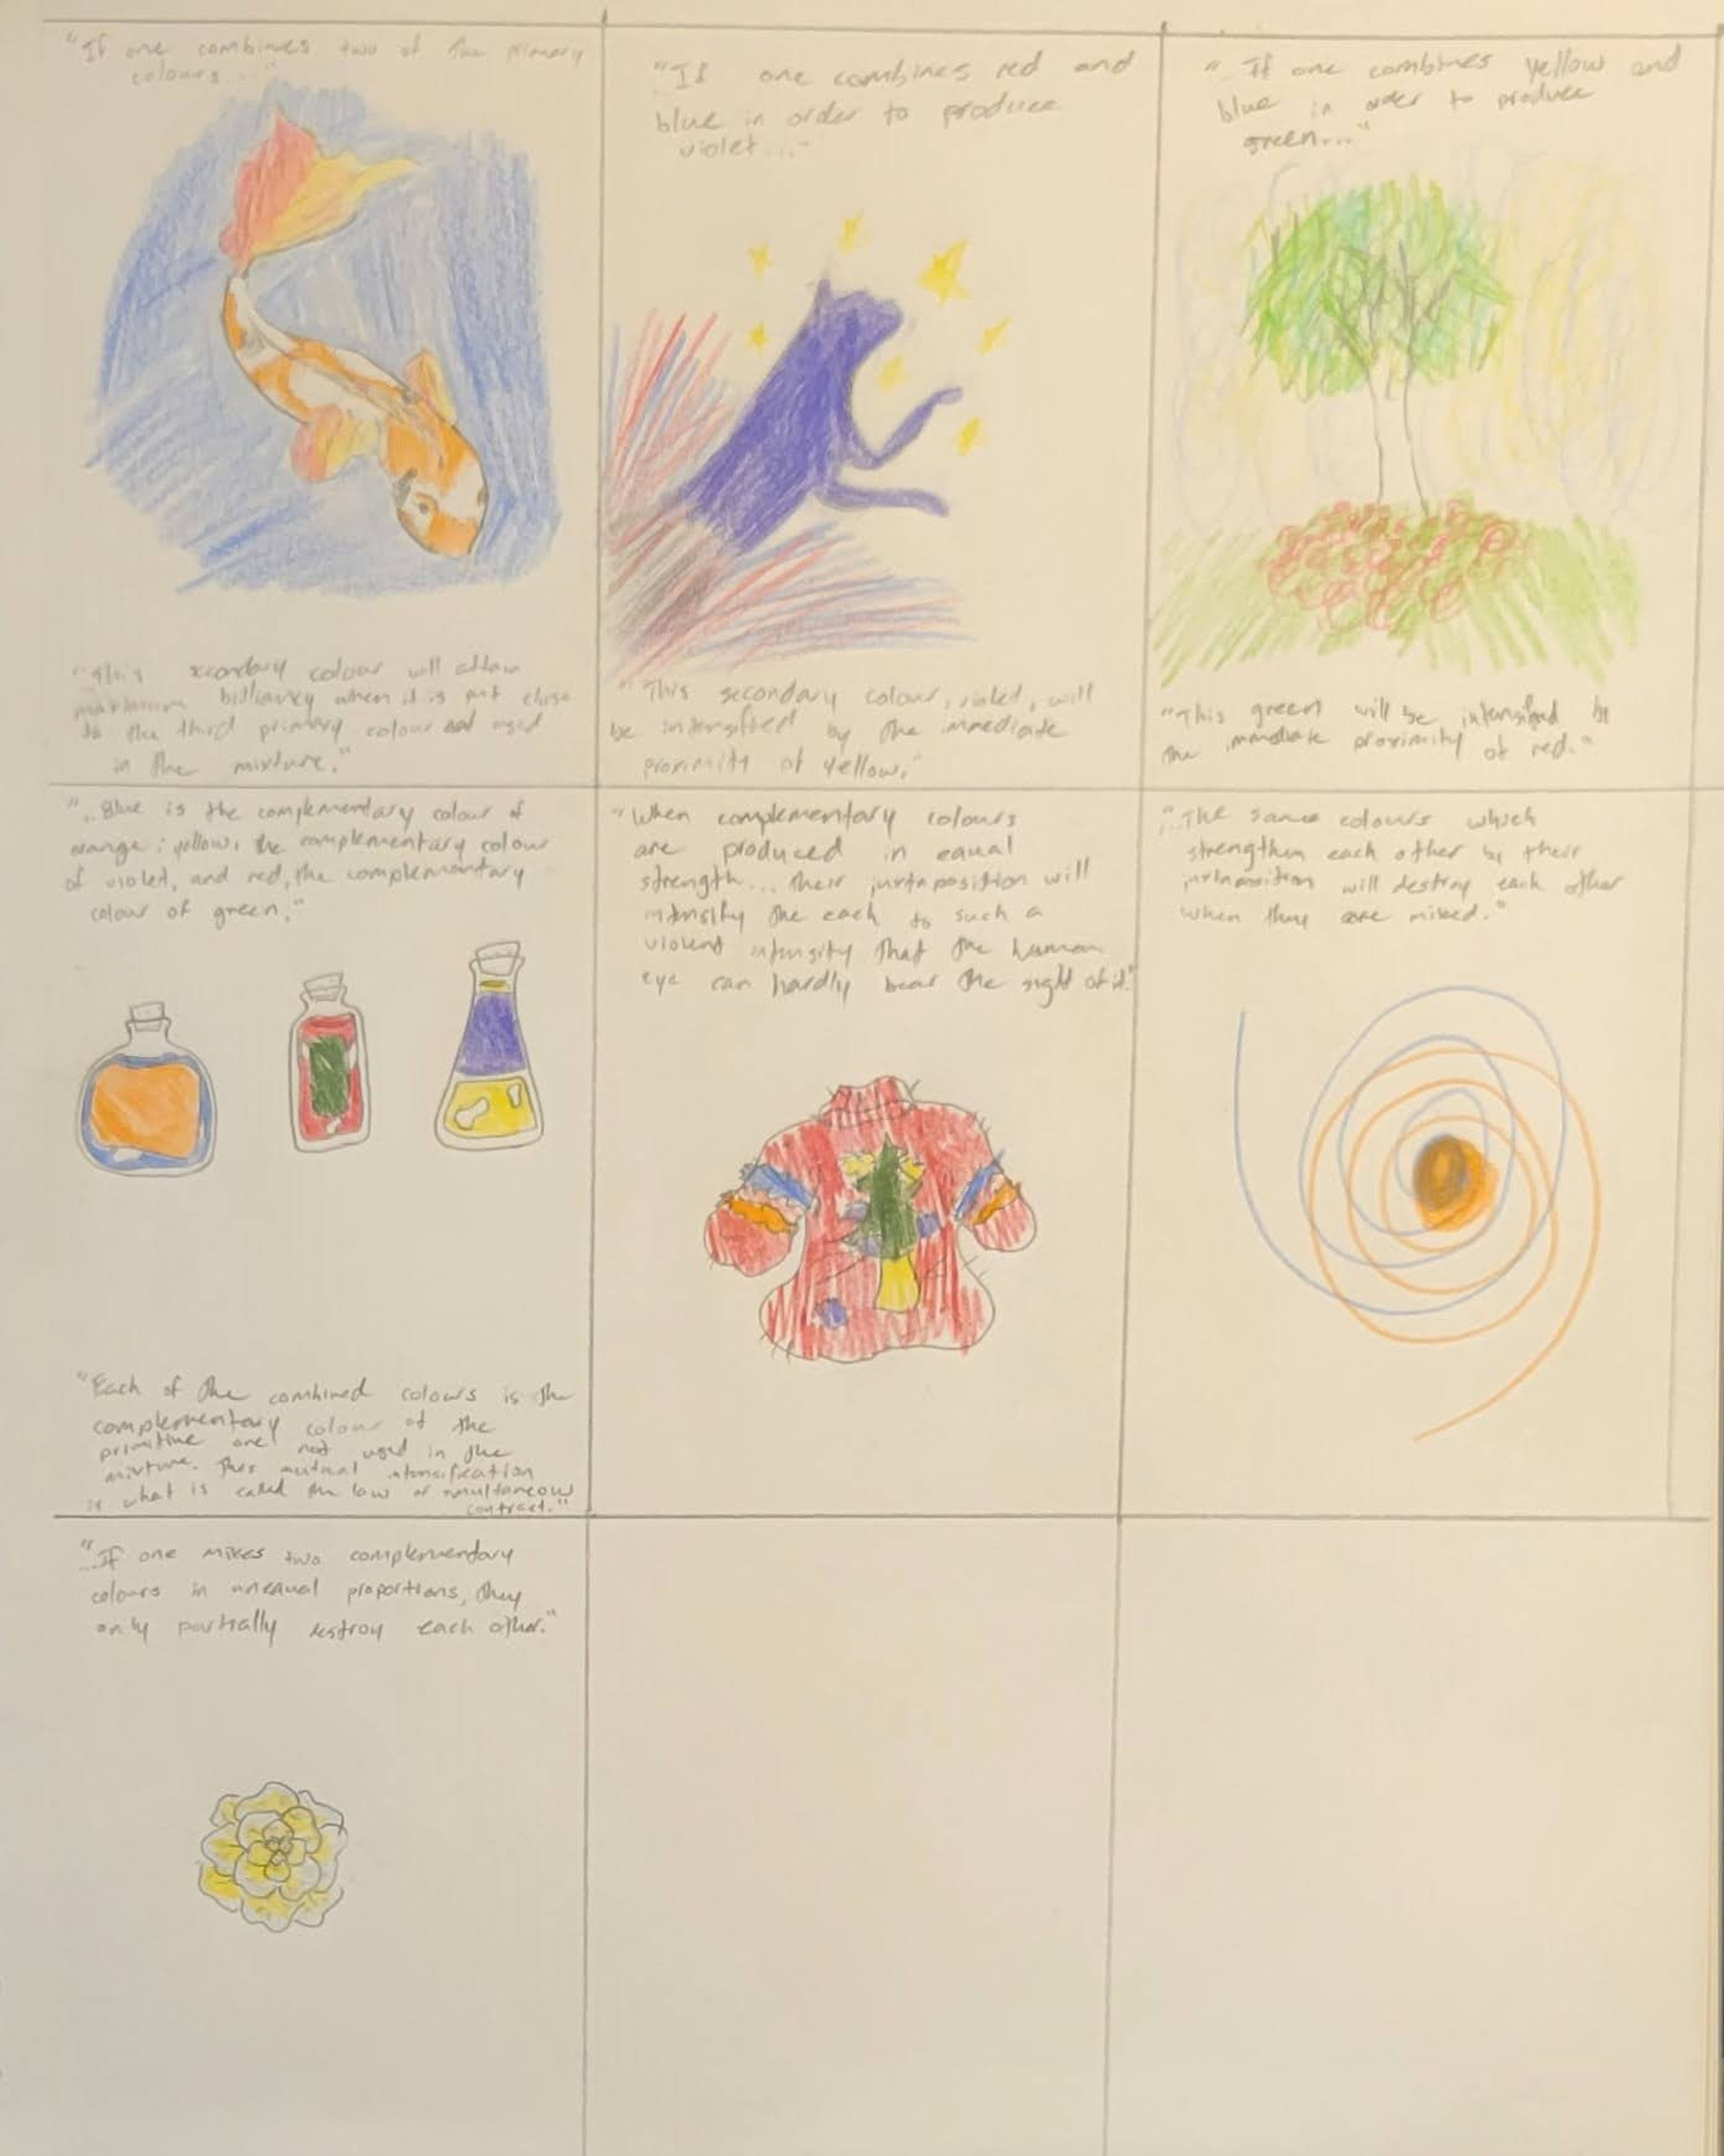 "If one combines two of the primary
colours..."
"This secondary colour will attain
maximum brilliancy when it is put close
to the third primary colour not used
in the mixture."
"If one combines red and
blue in order to produce
violet..."
"This secondary colour, violet, will
be intensified by the immediate
proximity of yellow."
"If one combines yellow and
blue in order to produce
green..."
"This green will be intensified by
the immediate proximity of red."
"..Blue is the complementary colour of
orange; yellow, the complementary colour
of violet, and red, the complementary
colour of green."
"Each of the combined colours is the
complementary colour of the
primitive one not used in the
mixture. This mutual intensification
is what is called the law of simultaneous
contrast."
"When complementary colours
are produced in equal
strength... their juxtaposition will
intensify the each to such a
violent intensity that the human
eye can hardly bear the sight of it."
"..The same colours which
strengthen each other by their
juxtaposition will destroy each other
when they are mixed."
"..If one mixes two complementary
colours in unequal proportions, they
only partially destroy each other."